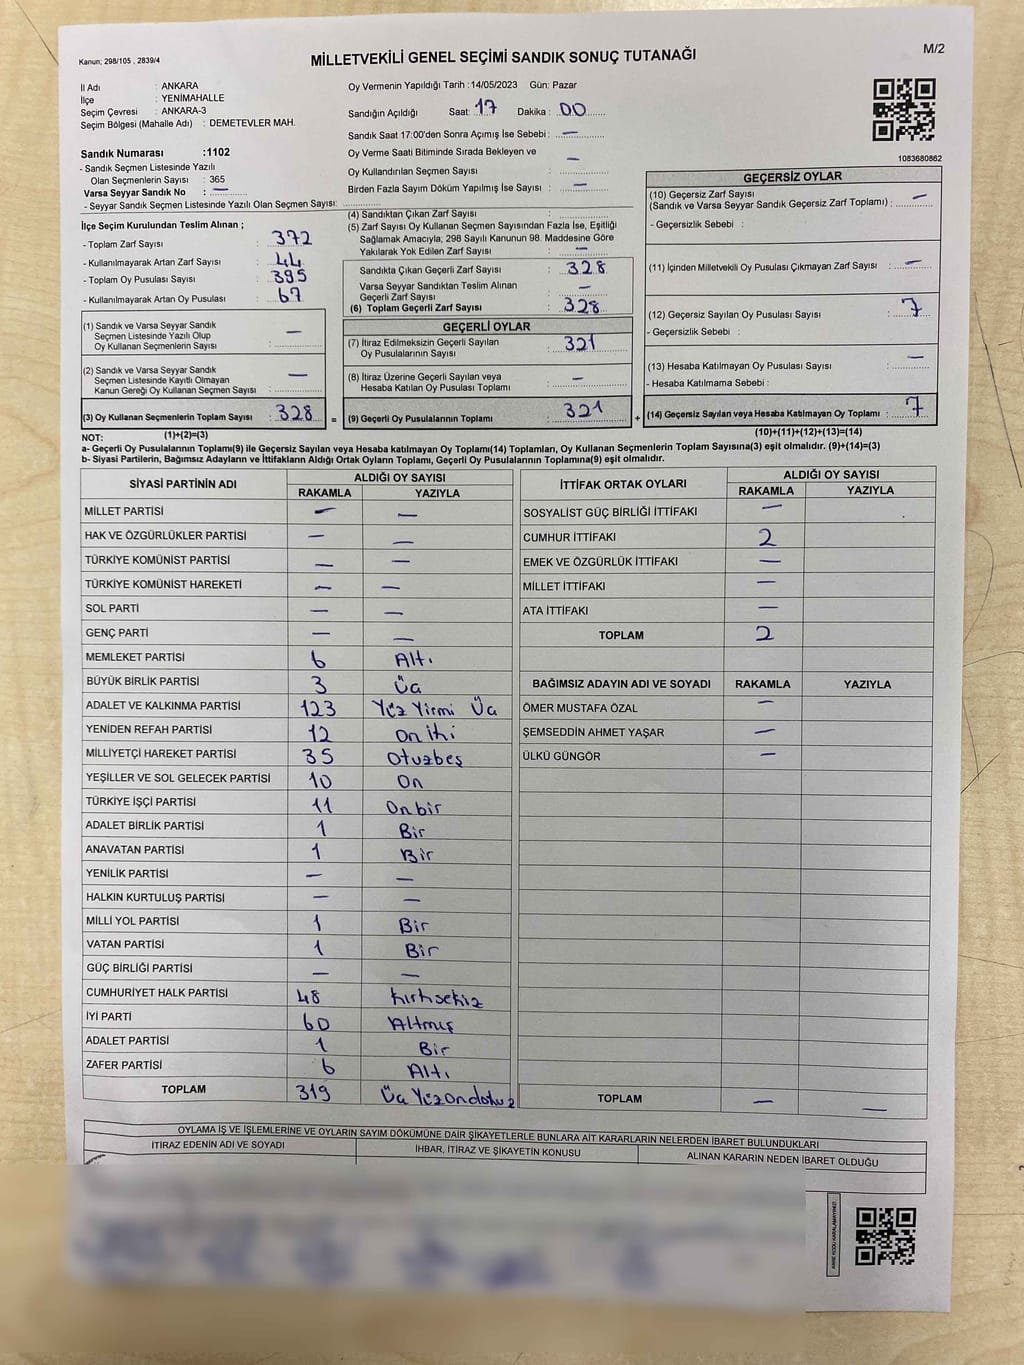 Kanun; 298/105 , 2839/4
MİLLETVEKİLİ GENEL SEÇİMİ SANDIK SONUÇ TUTANAĞI
M/2
İl Adı : ANKARA
İlçe : YENİMAHALLE
Seçim Çevresi : ANKARA-3
Seçim Bölgesi (Mahalle Adı) : DEMETEVLER MAH.
Sandık Numarası :1102
- Sandık Seçmen Listesinde Yazılı
Olan Seçmenlerin Sayısı : 365
Varsa Seyyar Sandık No : —
- Seyyar Sandık Seçmen Listesinde Yazılı Olan Seçmen Sayısı:
Oy Vermenin Yapıldığı Tarih :14/05/2023 Gün: Pazar
Sandığın Açıldığı Saat: 17 Dakika : 00
Sandık Saat 17:00'den Sonra Açımış İse Sebebi : —
Oy Verme Saati Bitiminde Sırada Bekleyen ve
Oy Kullandırılan Seçmen Sayısı : —
Birden Fazla Sayım Döküm Yapılmış İse Sayısı : —
1083680862
İlçe Seçim Kurulundan Teslim Alınan ;
- Toplam Zarf Sayısı : 372
- Kullanılmayarak Artan Zarf Sayısı : 44
- Toplam Oy Pusulası Sayısı : 395
- Kullanılmayarak Artan Oy Pusulası : 67
(1) Sandık ve Varsa Seyyar Sandık
Seçmen Listesinde Yazılı Olup
Oy Kullanan Seçmenlerin Sayısı : —
(2) Sandık ve Varsa Seyyar Sandık
Seçmen Listesinde Kayıtlı Olmayan
Kanun Gereği Oy Kullanan Seçmen Sayısı : —
(3) Oy Kullanan Seçmenlerin Toplam Sayısı : 328
(4) Sandıktan Çıkan Zarf Sayısı :
(5) Zarf Sayısı Oy Kullanan Seçmen Sayısından Fazla İse, Eşitliği
Sağlamak Amacıyla; 298 Sayılı Kanunun 98. Maddesine Göre
Yakılarak Yok Edilen Zarf Sayısı : —
Sandıkta Çıkan Geçerli Zarf Sayısı : 328
Varsa Seyyar Sandıktan Teslim Alınan
Geçerli Zarf Sayısı : —
(6) Toplam Geçerli Zarf Sayısı : 328
GEÇERLİ OYLAR
(7) İtiraz Edilmeksizin Geçerli Sayılan
Oy Pusulalarının Sayısı : 321
(8) İtiraz Üzerine Geçerli Sayılan veya
Hesaba Katılan Oy Pusulası Toplamı : —
= (9) Geçerli Oy Pusulalarının Toplamı : 321
GEÇERSİZ OYLAR
(10) Geçersiz Zarf Sayısı
(Sandık ve Varsa Seyyar Sandık Geçersiz Zarf Toplamı) : —
- Geçersizlik Sebebi :
(11) İçinden Milletvekili Oy Pusulası Çıkmayan Zarf Sayısı : —
(12) Geçersiz Sayılan Oy Pusulası Sayısı : 7
- Geçersizlik Sebebi :
(13) Hesaba Katılmayan Oy Pusulası Sayısı : —
- Hesaba Katılmama Sebebi :
+ (14) Geçersiz Sayılan veya Hesaba Katılmayan Oy Toplamı : 7
NOT: (1)+(2)=(3)
(10)+(11)+(12)+(13)=(14)
a- Geçerli Oy Pusulalarının Toplamı(9) ile Geçersiz Sayılan veya Hesaba katılmayan Oy Toplamı(14) Toplamları, Oy Kullanan Seçmenlerin Toplam Sayısına(3) eşit olmalıdır. (9)+(14)=(3)
b- Siyasi Partilerin, Bağımsız Adayların ve İttifakların Aldığı Ortak Oyların Toplamı, Geçerli Oy Pusulalarının Toplamına(9) eşit olmalıdır.
SİYASİ PARTİNİN ADI ALDIĞI OY SAYISI
RAKAMLA YAZIYLA
MİLLET PARTİSİ — —
HAK VE ÖZGÜRLÜKLER PARTİSİ — —
TÜRKİYE KOMÜNİST PARTİSİ — —
TÜRKİYE KOMÜNİST HAREKETİ — —
SOL PARTİ — —
GENÇ PARTİ — —
MEMLEKET PARTİSİ 6 Altı
BÜYÜK BİRLİK PARTİSİ 3 Üç
ADALET VE KALKINMA PARTİSİ 123 Yüz Yirmi Üç
YENİDEN REFAH PARTİSİ 12 On iki
MİLLİYETÇİ HAREKET PARTİSİ 35 Otuzbeş
YEŞİLLER VE SOL GELECEK PARTİSİ 10 On
TÜRKİYE İŞÇİ PARTİSİ 11 Onbir
ADALET BİRLİK PARTİSİ 1 Bir
ANAVATAN PARTİSİ 1 Bir
YENİLİK PARTİSİ — —
HALKIN KURTULUŞ PARTİSİ — —
MİLLİ YOL PARTİSİ 1 Bir
VATAN PARTİSİ 1 Bir
GÜÇ BİRLİĞİ PARTİSİ — —
CUMHURİYET HALK PARTİSİ 48 Kırksekiz
İYİ PARTİ 60 Altmış
ADALET PARTİSİ 1 Bir
ZAFER PARTİSİ 6 Altı
TOPLAM 319 Üç Yüz Ondokuz
İTTİFAK ORTAK OYLARI ALDIĞI OY SAYISI
RAKAMLA YAZIYLA
SOSYALİST GÜÇ BİRLİĞİ İTTİFAKI —
CUMHUR İTTİFAKI 2
EMEK VE ÖZGÜRLÜK İTTİFAKI —
MİLLET İTTİFAKI —
ATA İTTİFAKI —
TOPLAM 2
BAĞIMSIZ ADAYIN ADI VE SOYADI RAKAMLA YAZIYLA
ÖMER MUSTAFA ÖZAL —
ŞEMSEDDİN AHMET YAŞAR —
ÜLKÜ GÜNGÖR —
TOPLAM — —
OYLAMA İŞ VE İŞLEMLERİNE VE OYLARIN SAYIM DÖKÜMÜNE DAİR ŞİKAYETLERLE BUNLARA AİT KARARLARIN NELERDEN İBARET BULUNDUKLARI
İTİRAZ EDENİN ADI VE SOYADI İHBAR, İTİRAZ VE ŞİKAYETİN KONUSU ALINAN KARARIN NEDEN İBARET OLDUĞU